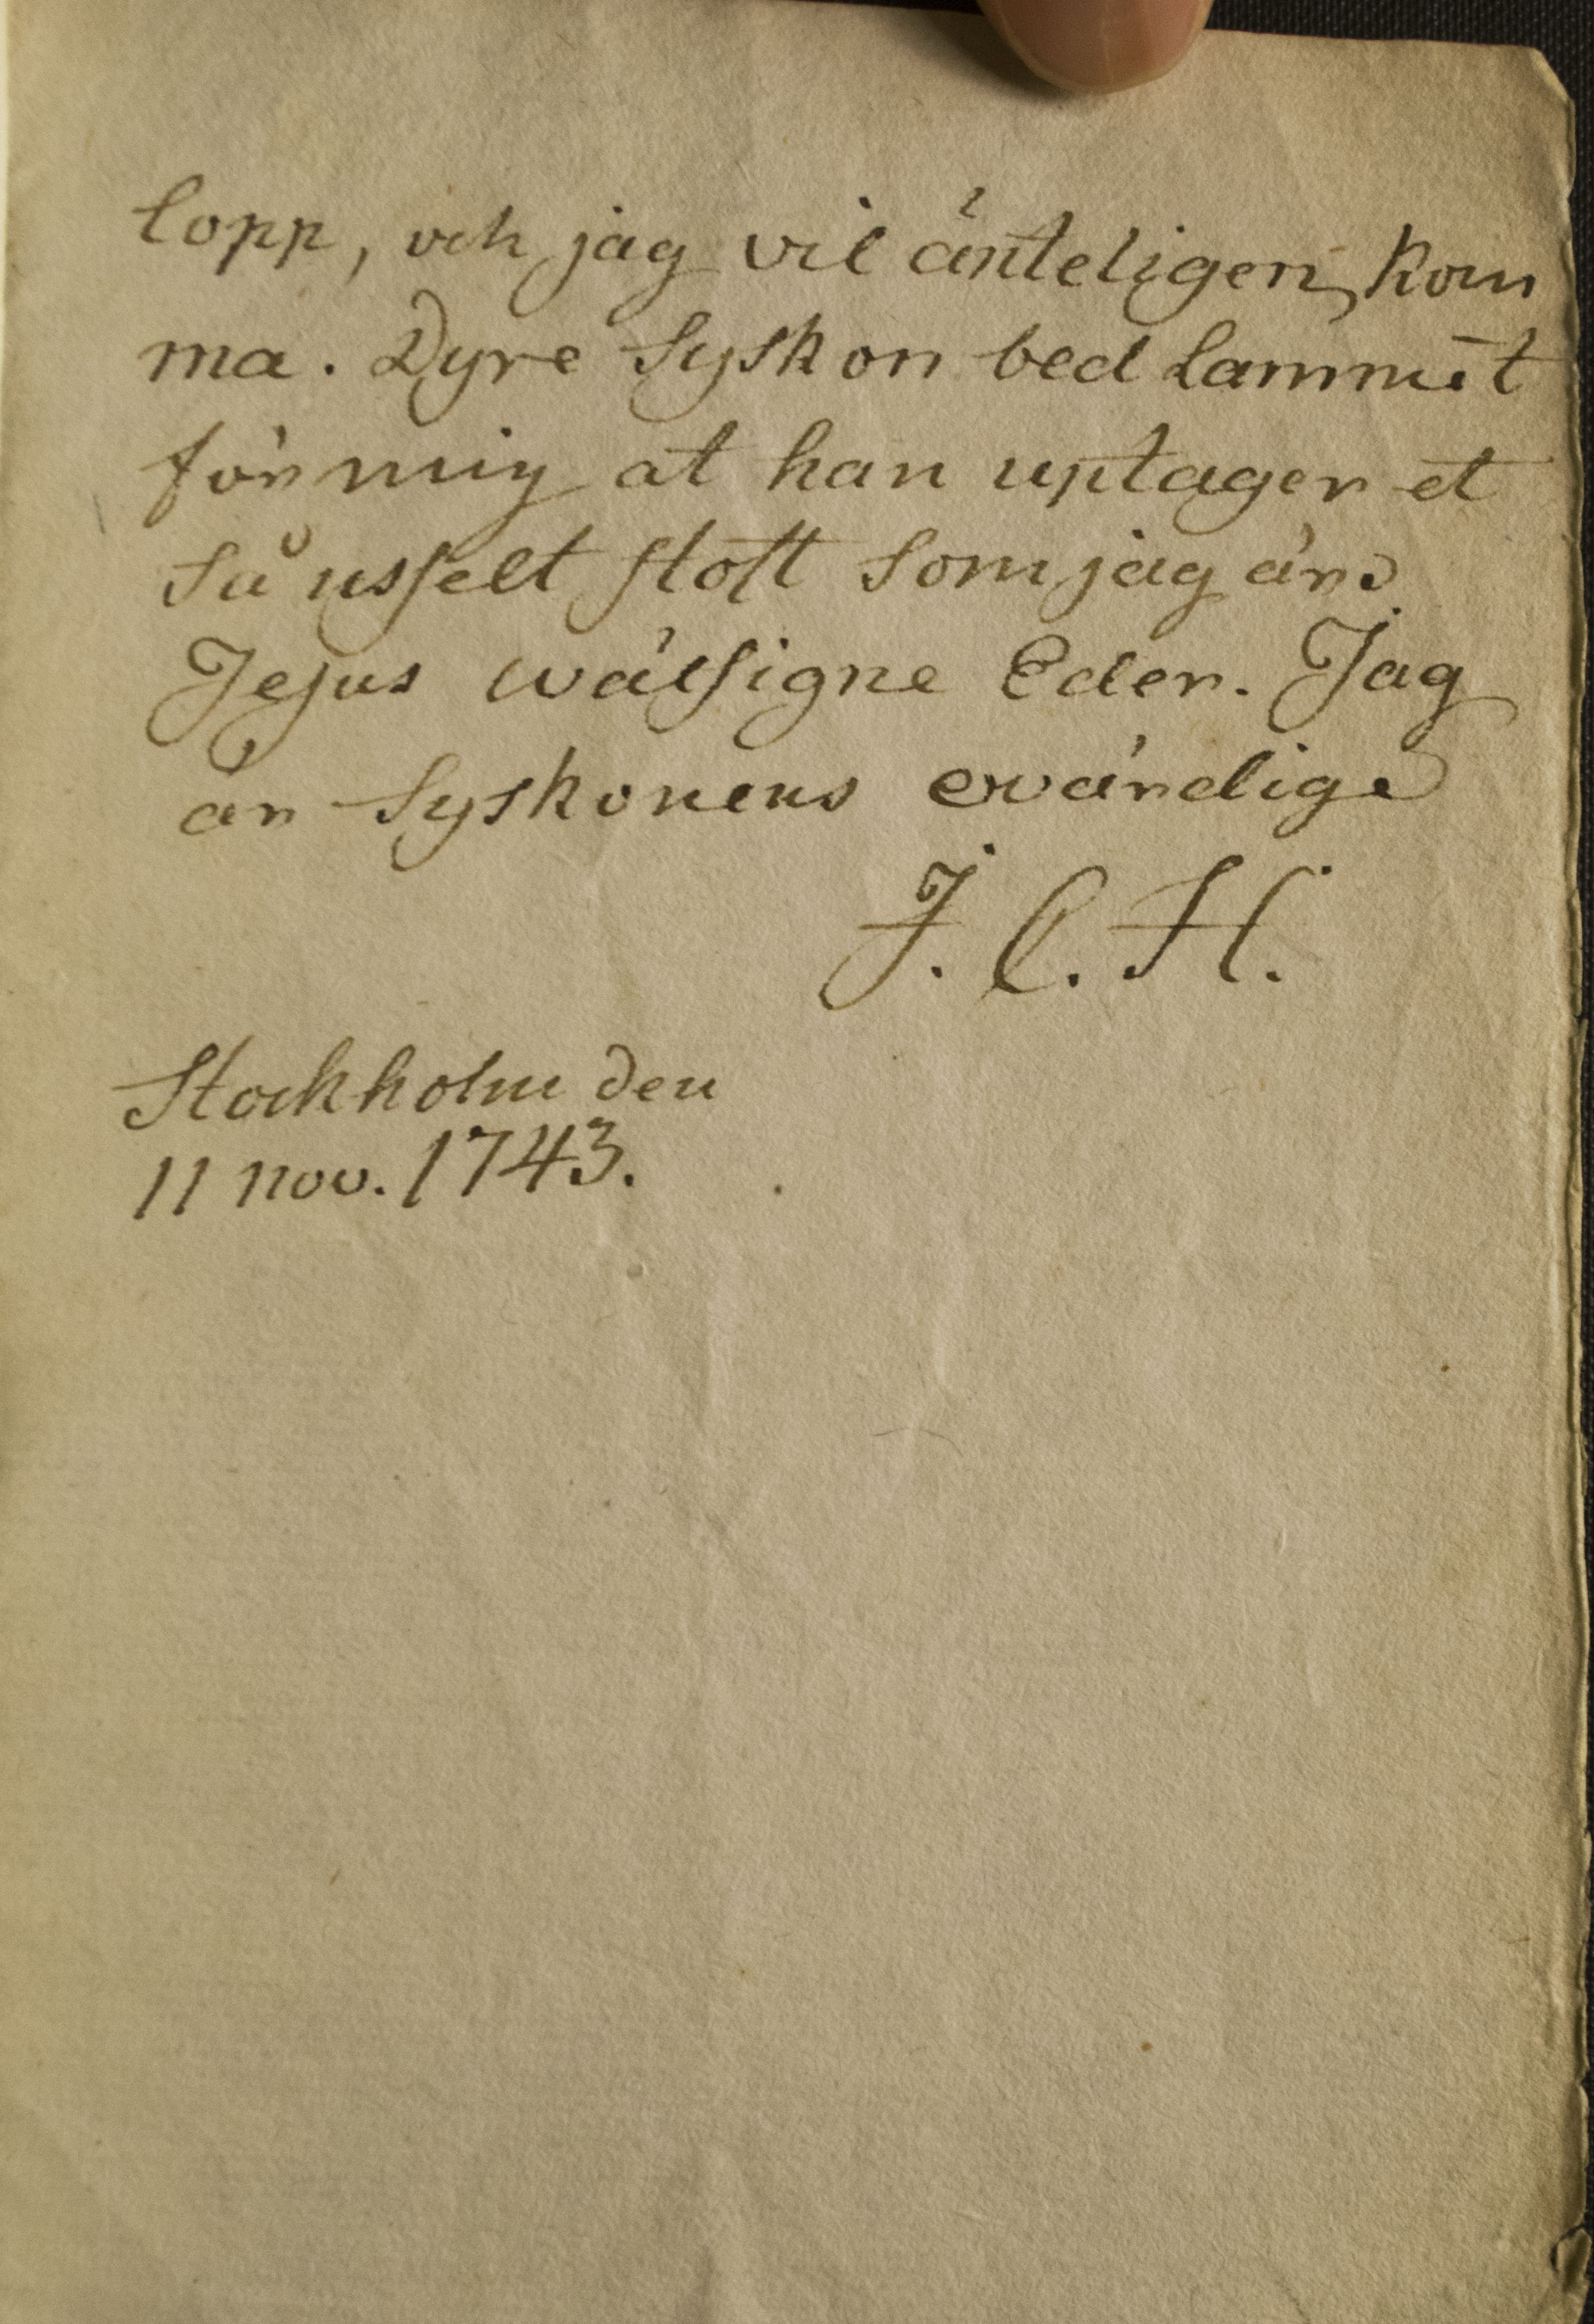 lopp, och jag vil änteligen kom
ma. Dyre Syskon bed Lammet
för mig at han uptager et
så usselt stoft som jag är.
Jesus wälsigne Eder. Jag
är Syskonens owärdige
J. C. H.
Stockholm den
11 nov. 1743.